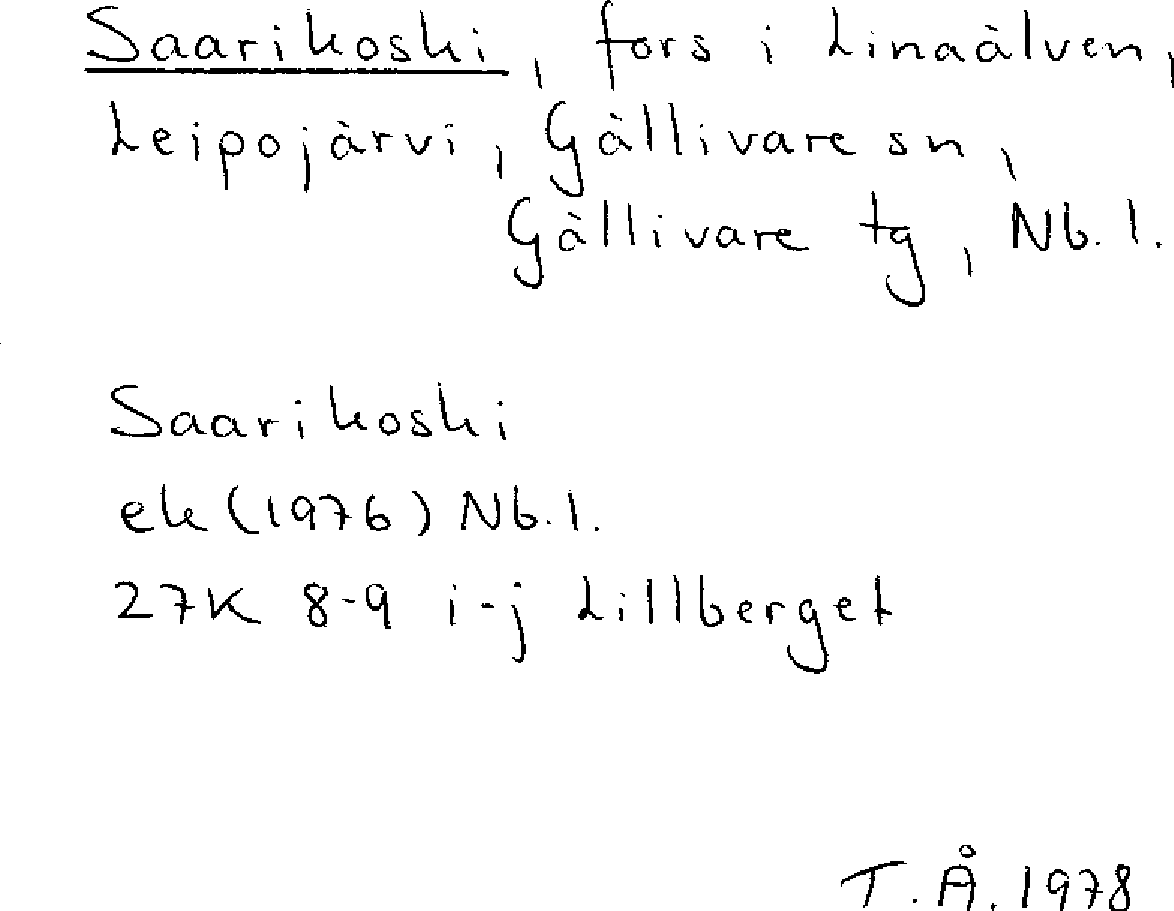 Saarikoski, fors i Linaälven,
Leipojärvi, Gällivare sn,
Gällivare tg, Nb. l.
Saarikoski
ek (1976) Nb. l.
27K 8-9 i-j Lillberget
T. Å. 1978